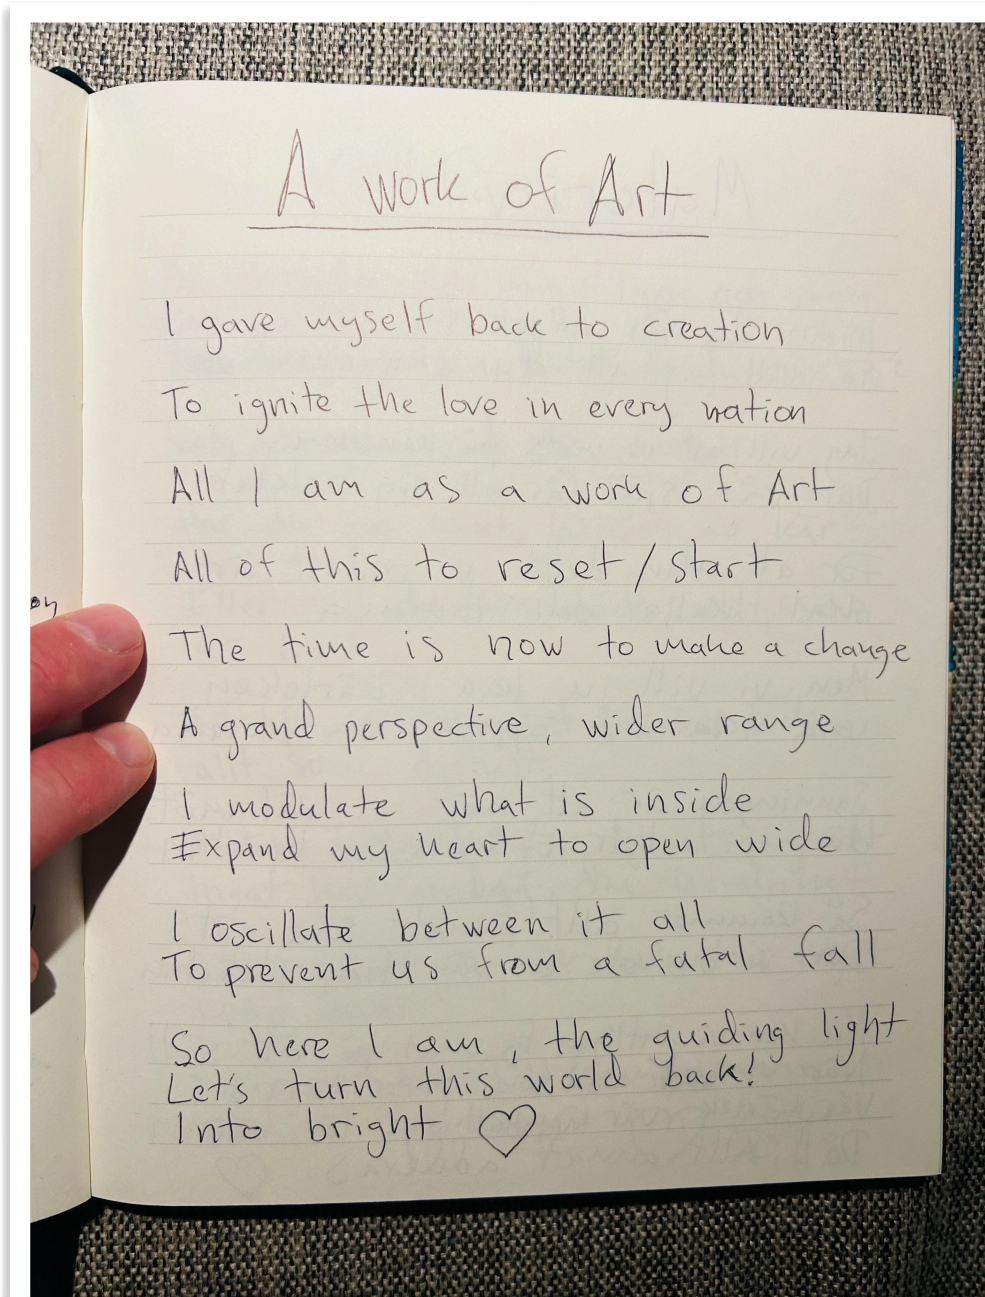 A work of Art
I gave myself back to creation
To ignite the love in every nation
All I am as a work of Art
All of this to reset/start
The time is now to make a change
A grand perspective, wider range
I modulate what is inside
Expand my heart to open wide
I oscillate between it all
To prevent us from a fatal fall
So here I am, the guiding light
Let's turn this world back!
Into bright ♡